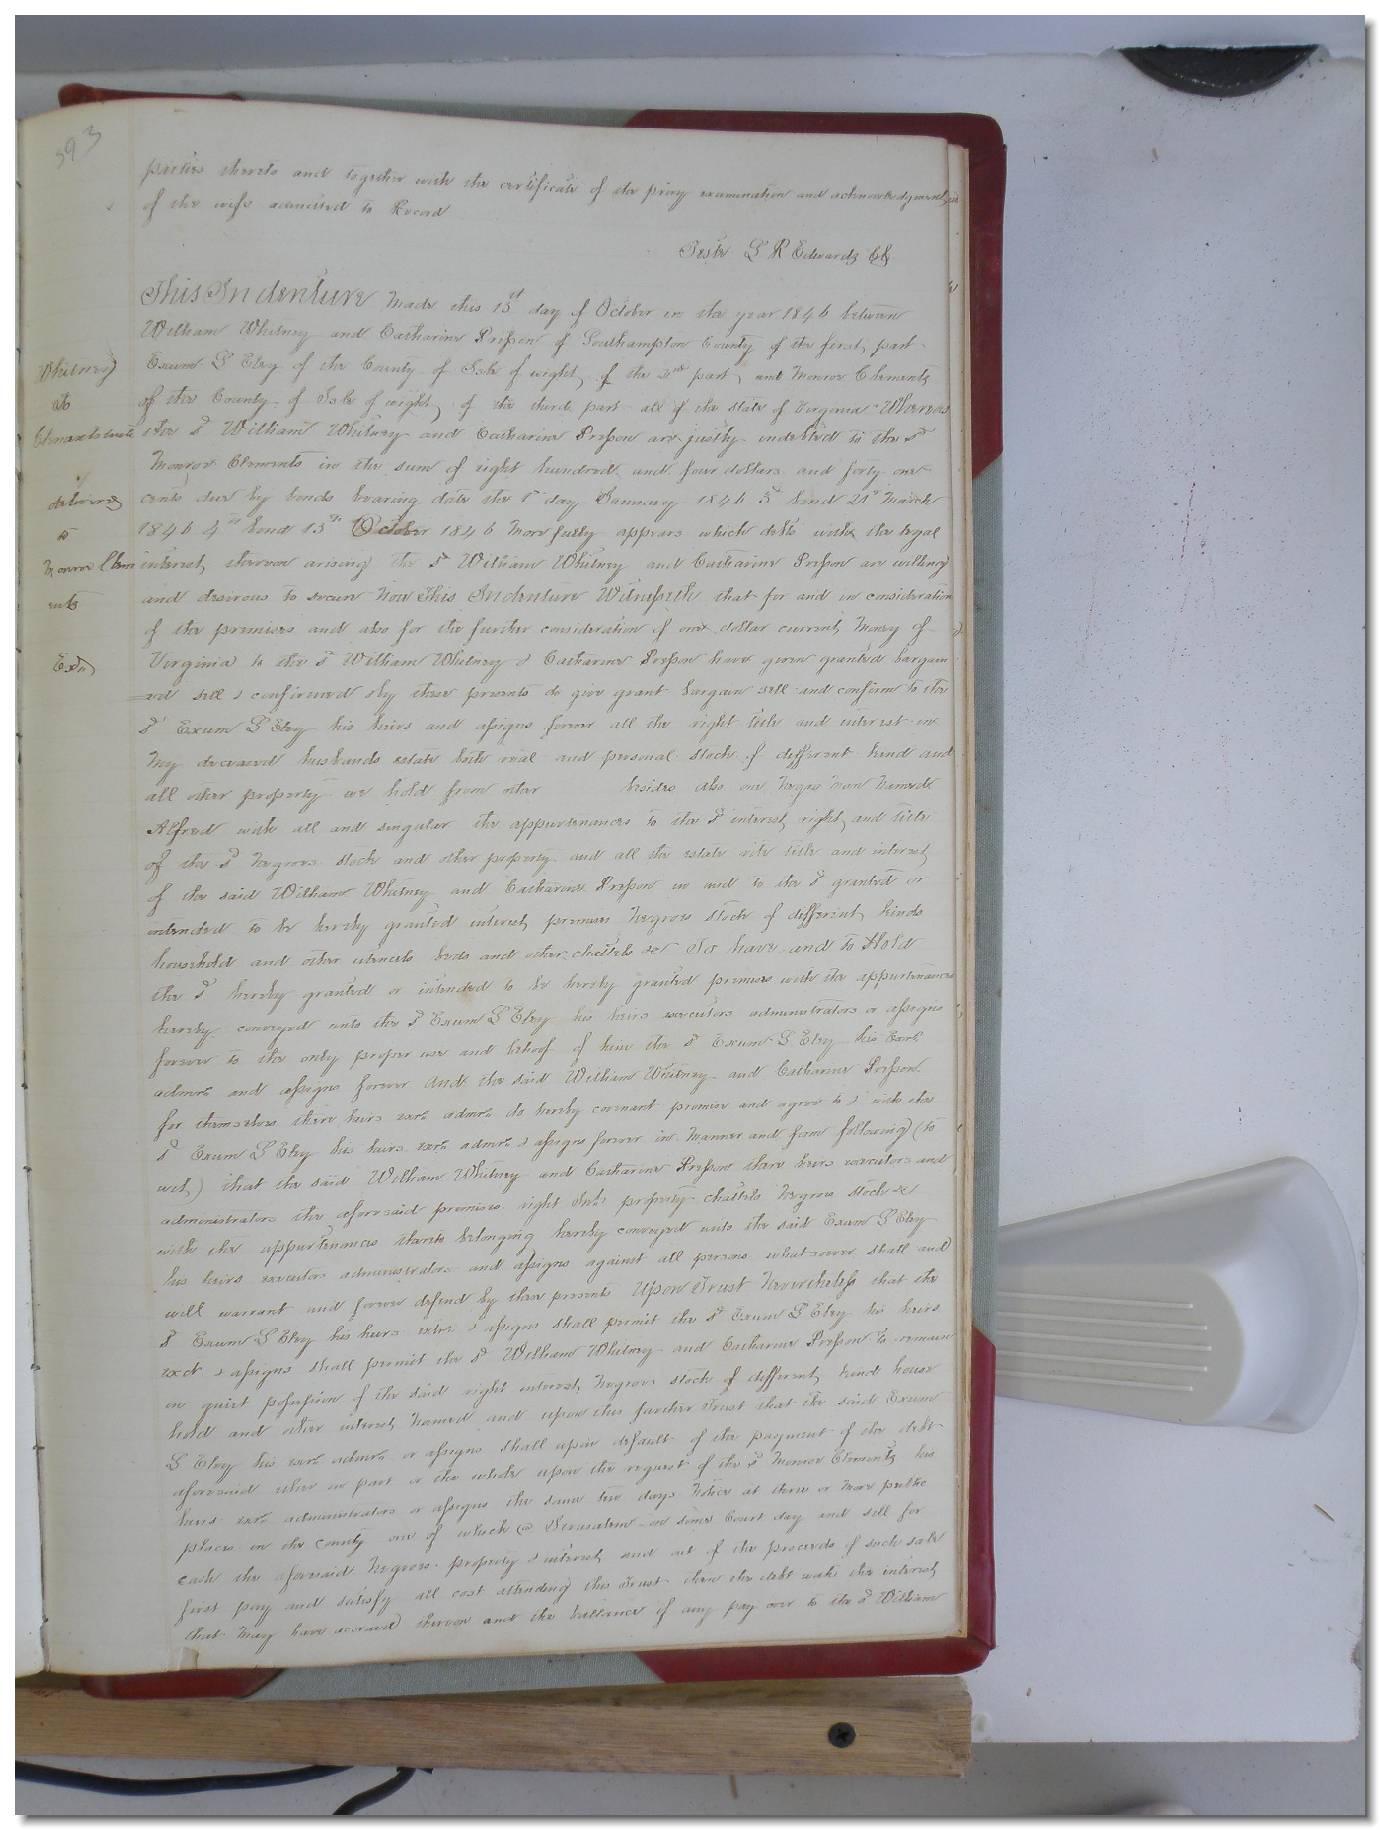 393
parties thereto and together with the certificate of the privy examination and acknowledgement
of the wife admitted to Record
Teste L R Edwards Clk
This Indenture Made this 15th day of October in the year 1846 between
William Whitney and Catharine Presson of Southampton County of the first part
Exum L Eley of the County of Isle of wight, of the 2nd part, and Monroe Clements
of the County of Isle of wight, of the third part all of the State of Virginia Whereas
the sd William Whitney and Catharine Presson are justly indebted to the sd
Monroe Clements in the sum of eight hundred and four dollars and forty one
cents due by bonds bearing date the 1st day January 1846 3d bond 21st March
1846 4th bond 15th October 1846 More fully appears which debts with the legal
interest, thereon arising the sd William Whitney and Catharine Presson are willing
and desirous to secure Now This Indenture Witnesseth that for and in consideration
of the premises and also for the further consideration of one dollar current Money of
Virginia to the sd William Whitney & Catharine Presson have given granted bargain
=ed sell & confirmed & by these presents do give grant bargain sell and confirm to the
sd Exum L Eley his heirs and assigns forever all the right title and interest in
My deceased husbands estate both real and personal stock of different kind and
all other property we hold from other besides also one Negro man Named
Alfred with all and singular the appurtenances to the sd interest right and title
of the sd Negroes stock and other property and all the estate rite title and interest
of the said William Whitney and Catharine Presson in and to the sd granted or
intended to be hereby granted interest, premises Negroes stock of different kinds
household and other utencels beds and other chattels &c To have and to Hold
the sd hereby granted or intended to be hereby granted premises with the appurtenances
hereby conveyed unto the sd Exum L Eley his heirs executors administrators or assigns
forever to the only proper use and behoof of him the sd Exum L Eley his Exrs
admrs and assigns forever And the said William Whitney and Catharine Presson
for themselves their heirs exrs admrs do hereby covenant promise and agree to & with the
sd Exum L Eley his heirs exrs admrs & assigns forever in Manner and form following (to
wit,) that the said William Whitney and Catharine Presson there heirs executors and
administrators the aforesaid premises right Int. property chattels Negroes stock &c
with the appurtenances thereto belonging hereby conveyed unto the said Exum L Eley
his heirs executors administrators and assigns against all persons whatsoever shall and
will warrant and forever defend by these presents Upon Trust Nevertheless that the
sd Exum L Eley his heirs exrs & assigns shall permit the sd Exum L Eley his heirs
exct & assigns shall permit the sd William Whitney and Catharine Presson to remain
in quiet possession of the said right interest, Negroes stock of different, kind house
hold and other interest, Named and upon this further Trust that the said Exum
L Eley his exrs admrs or assigns shall upon default of the payment of the debt
aforesaid either in part or the whole upon the request of the sd Monroe Clements his
heirs exrs administrators or assigns the same ten days Notice at three or More public
places in the county one of which @ Jerusalem on some Court day and sell for
cash the aforesaid Negroes property & interest, and out of the proceeds of such sale
first pay and satisfy all cost attending this Trust then the debt with the interest
that May have accrued thereon and the ballance if any pay over to the sd William
Whitney
to
delivered
to
Monroe Clem
ents
Exd